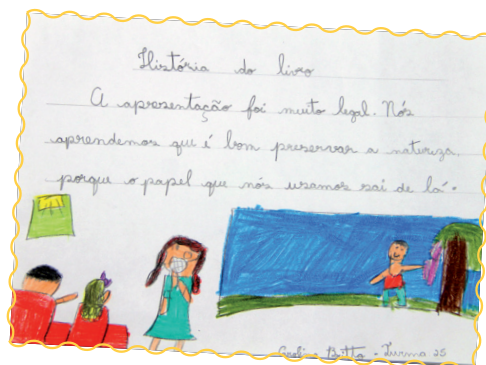 História do livro
A apresentação foi muito legal. Nós
aprendemos que é bom preservar a natureza.
porque o papel que nós usamos sai de lá.
Carolina Britto - Turma 25